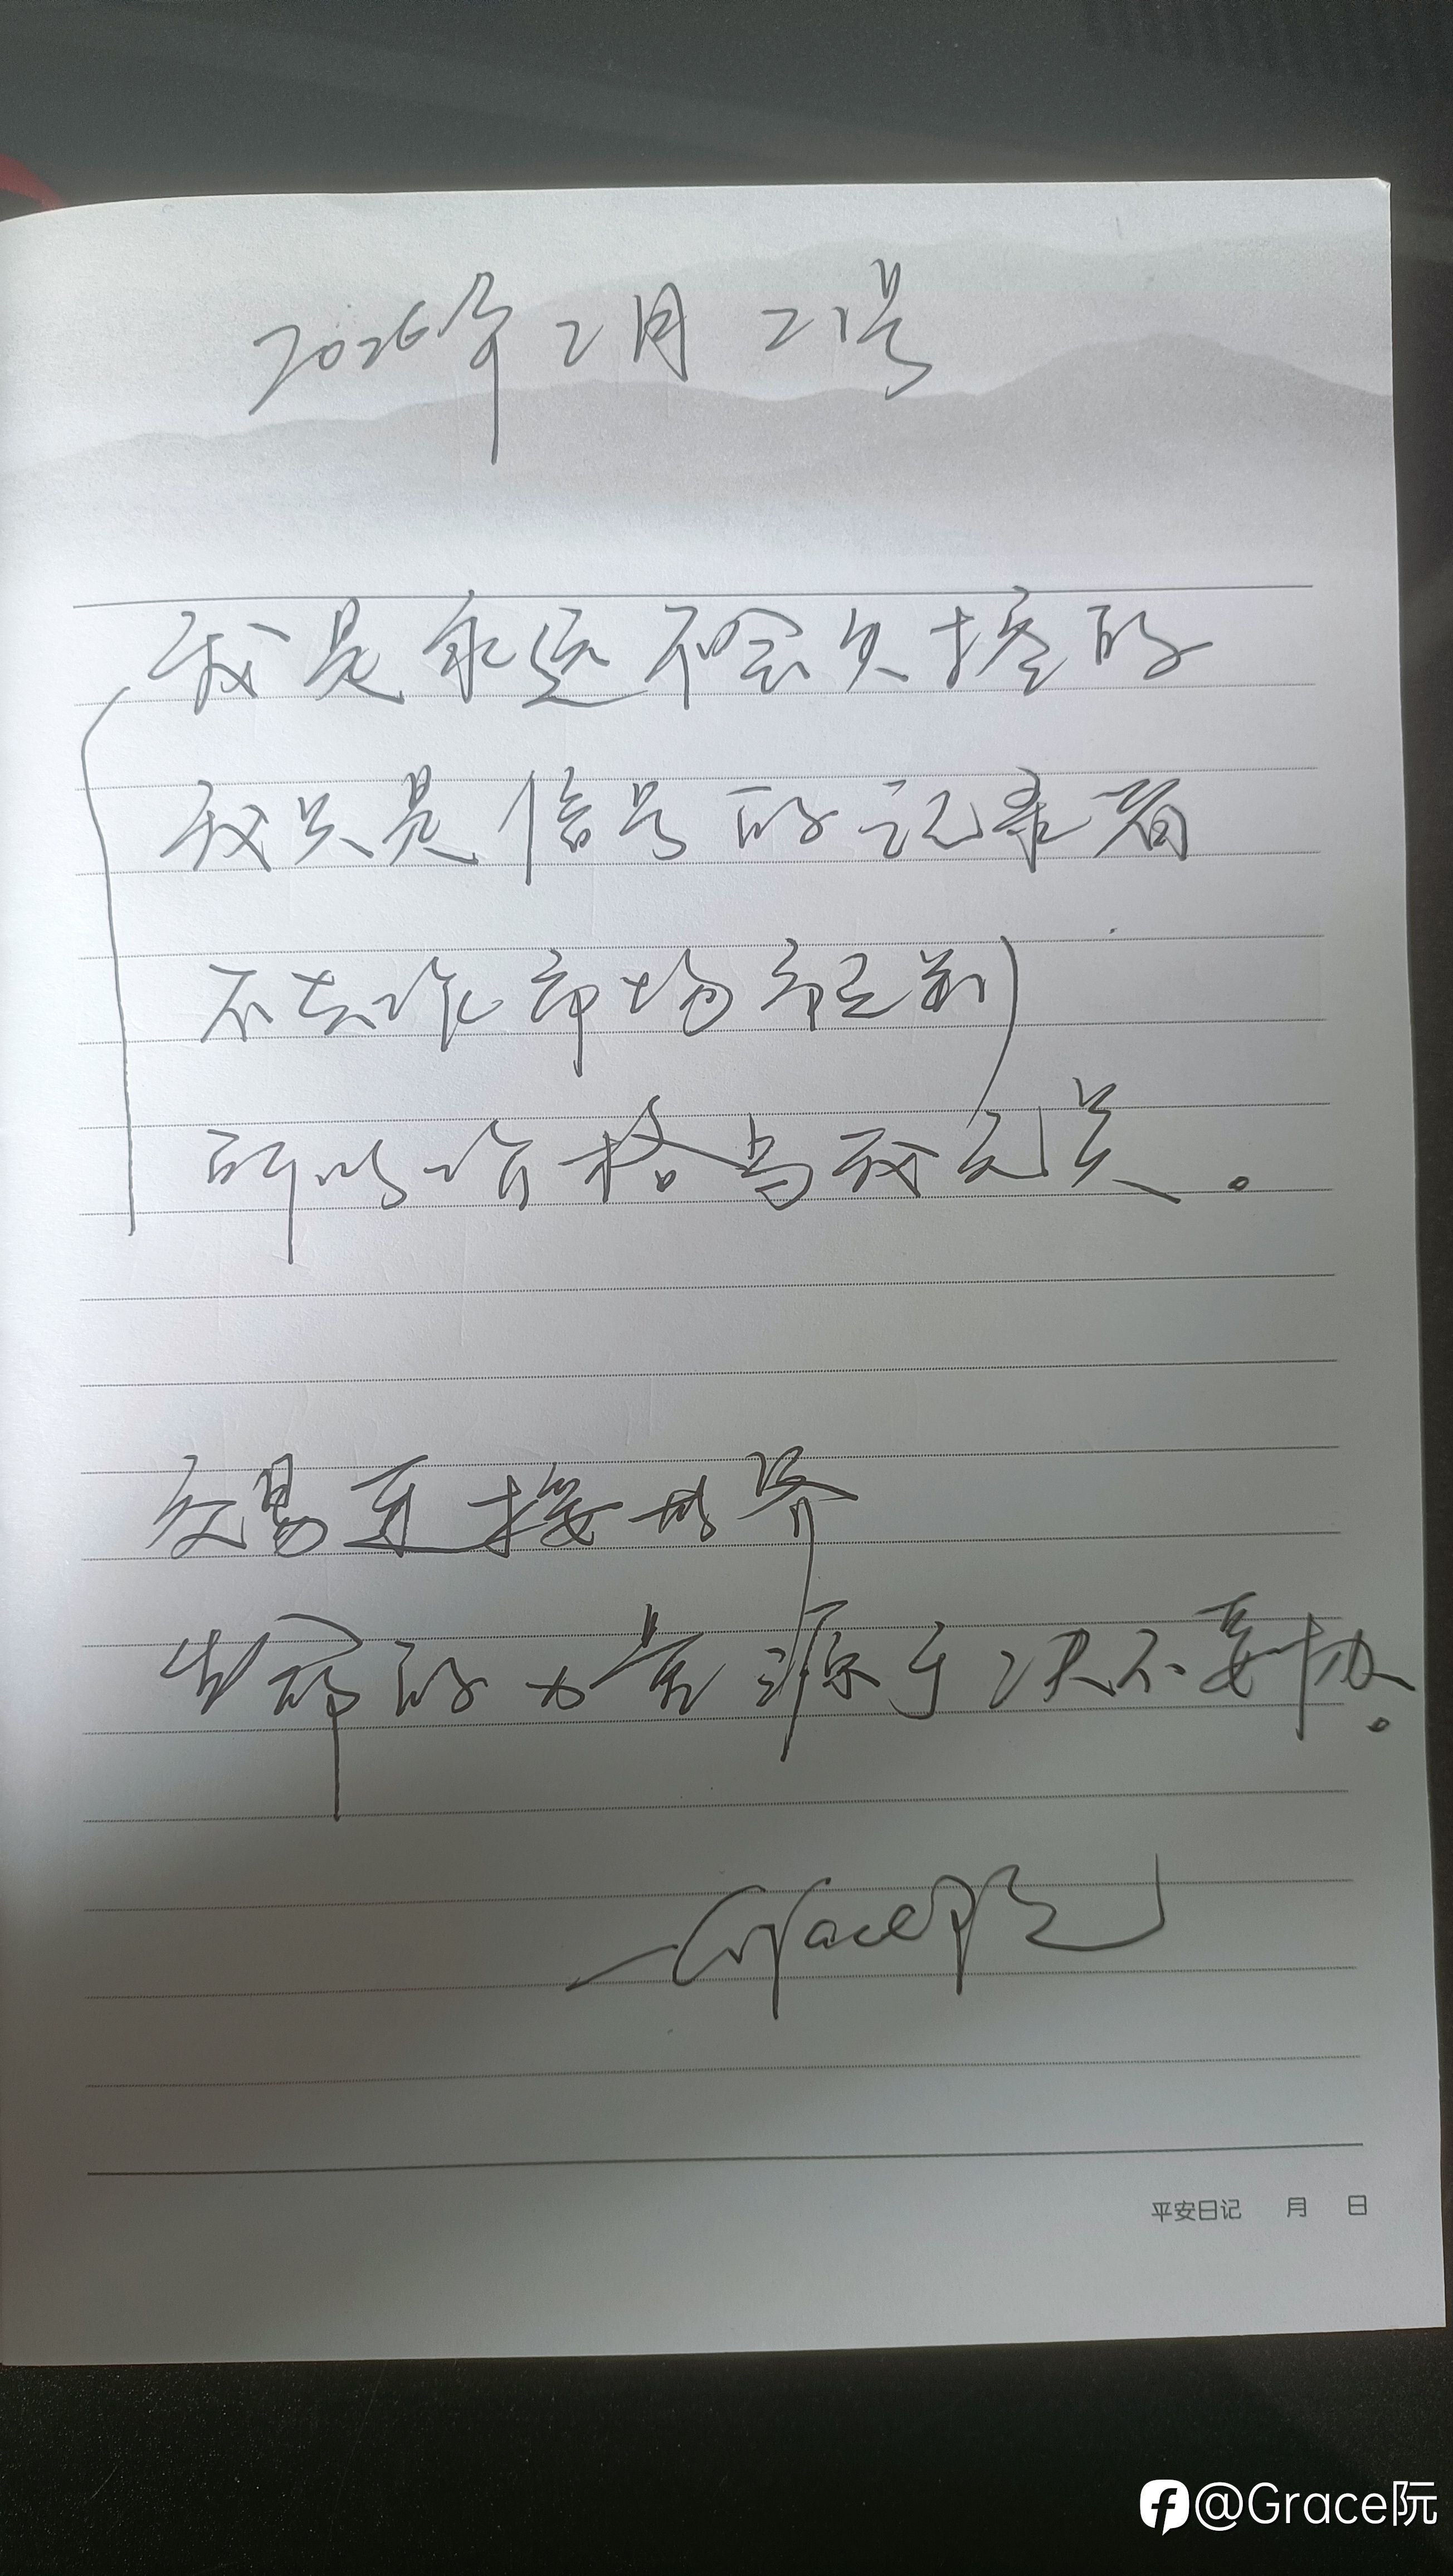 2026年2月21号
我是永远不会失控的
我只是信号的记录者
不去做市场预判
所以价格与我无关。
交易连接世界
生命的力量源于决不妥协。
—Grace阮
平安日记 月 日
@Grace阮